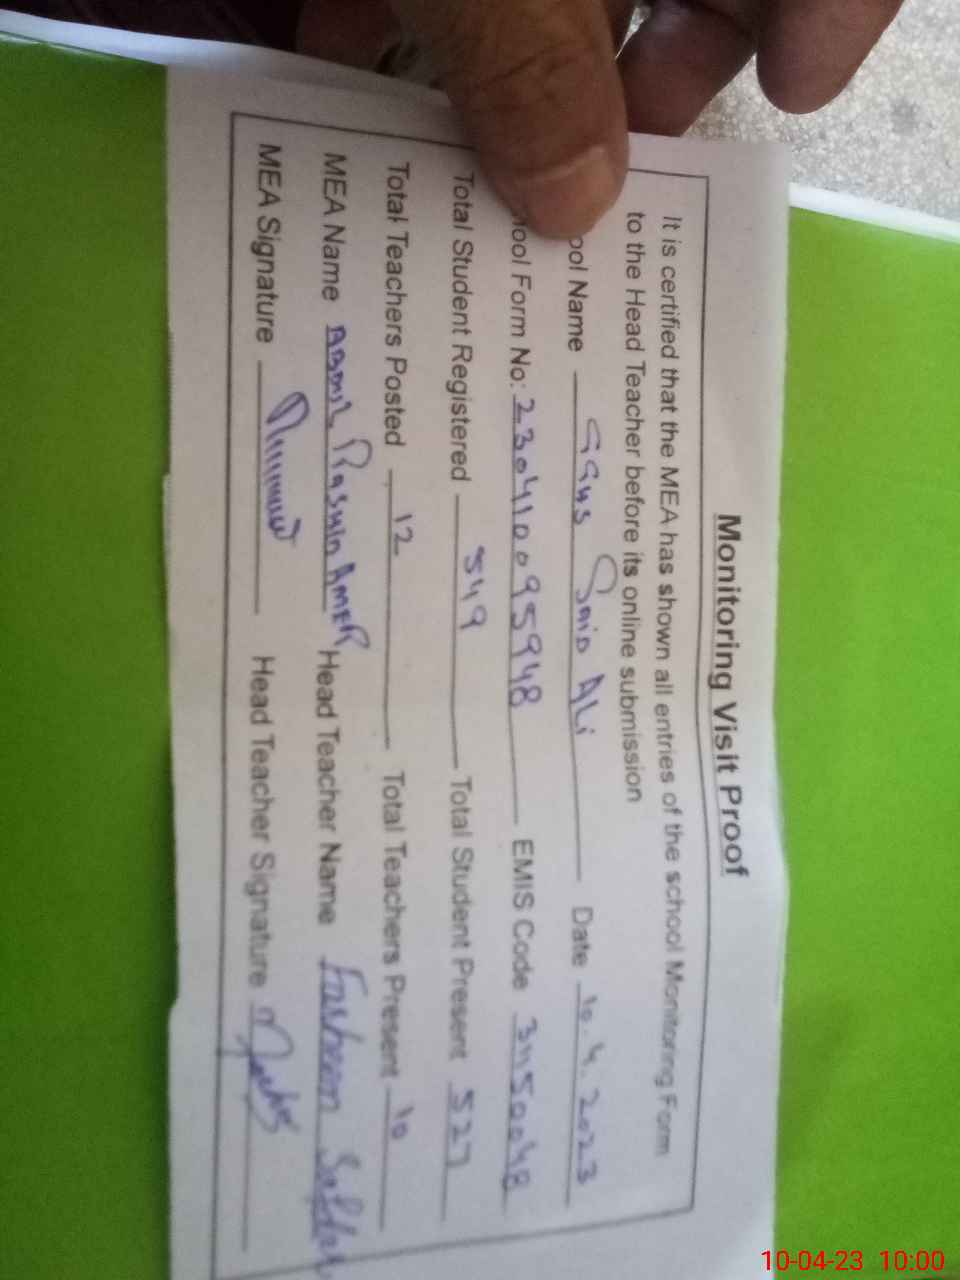 Monitoring Visit Proof
It is certified that the MEA has shown all entries of the school Monitoring Form
to the Head Teacher before its online submission
ool Name GGHS Said Ali Date 10.4.2023
ool Form No: 230410095948 EMIS Code 31150048
Total Student Registered 549 Total Student Present 527
Total Teachers Posted 12 Total Teachers Present 10
MEA Name Abdul Amer Head Teacher Name
MEA Signature Head Teacher Signature
10-04-23 10:00